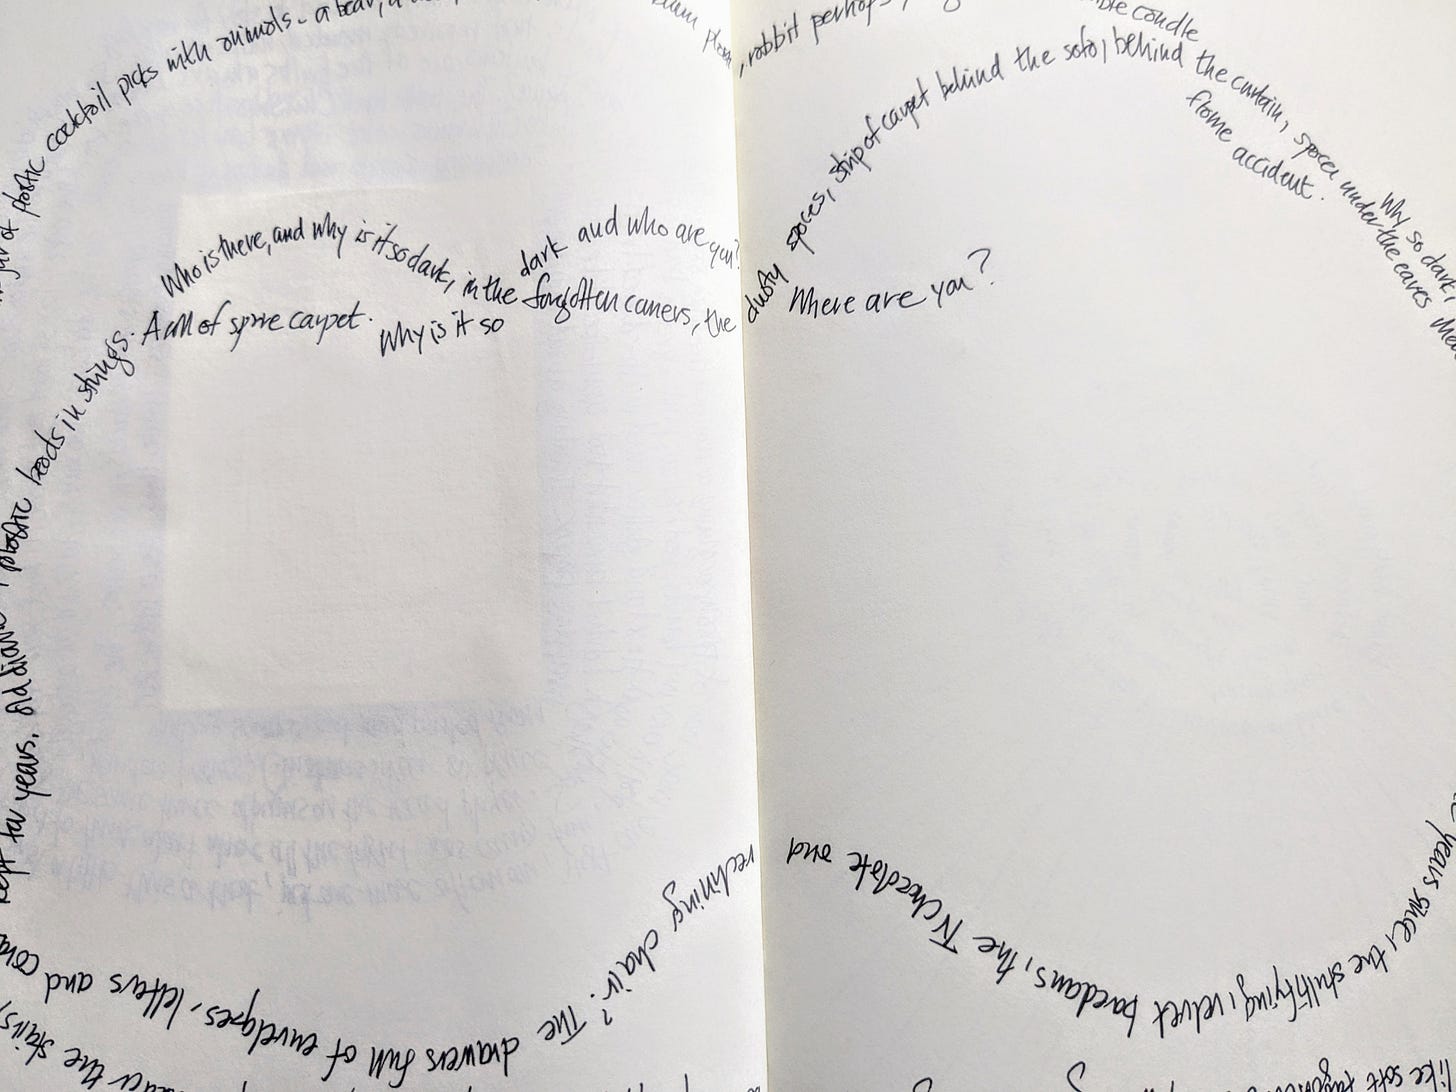 plastic cocktail picks with animals - a bear, a
rabbit perhaps,
candle
flame accident.
Who is there, and why is it so dark, in the forgotten corners, the dusty spaces, strip of carpet behind the sofa, behind the curtain, spaces under the eaves
dark and who are you?
Why so dark,
Where are you?
Why is it so
kept for years, old plastic beads in strings. A roll of spare carpet.
reclining chair? The drawers full of envelopes, letters and
the stairs,
years since, the stultifying, velvet boredoms, the TV chocolate and
like soft